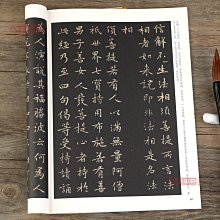 信解不生法相須菩提所言法
相者如來說即非法相是名法
相
須菩提若有人以滿無量阿僧
祇世界七寶持用布施若有善
男子善女人發菩提心者持於
此經乃至四句偈等受持讀誦
為人演說其福勝彼云何為人